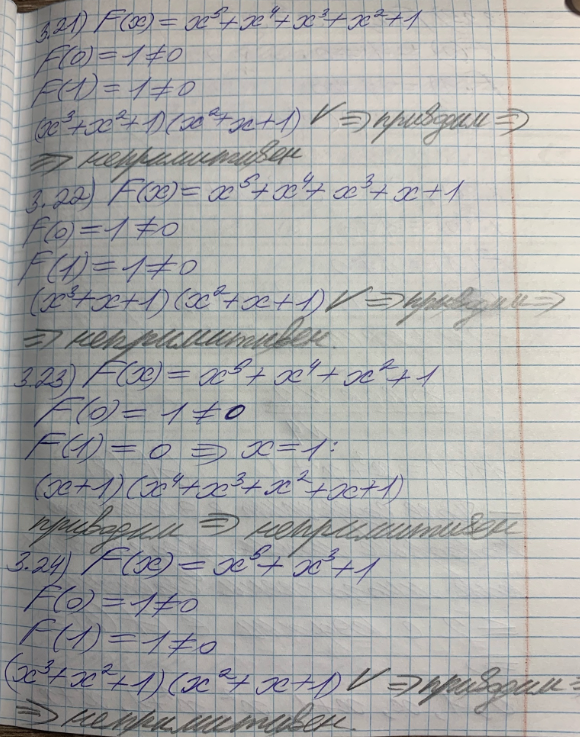 3.21) F(x) = x⁵ + x⁴ + x³ + x² + 1
F(0) = 1 ≠ 0
F(1) = 1 ≠ 0
(x³ + x² + 1)(x² + x + 1) V ⇒ приводим ⇒
⇒ непримитивен
3.22) F(x) = x⁵ + x⁴ + x³ + x + 1
F(0) = 1 ≠ 0
F(1) = 1 ≠ 0
(x³ + x + 1)(x² + x + 1) V ⇒ приводим ⇒
⇒ непримитивен
3.23) F(x) = x⁵ + x⁴ + x² + 1
F(0) = 1 ≠ 0
F(1) = 0 ⇒ x = 1:
(x + 1)(x⁴ + x³ + x² + x + 1)
приводим ⇒ непримитивен
3.24) F(x) = x⁵ + x³ + 1
F(0) = 1 ≠ 0
F(1) = 1 ≠ 0
(x³ + x² + 1)(x² + x + 1) V ⇒ приводим ⇒
⇒ непримитивен.